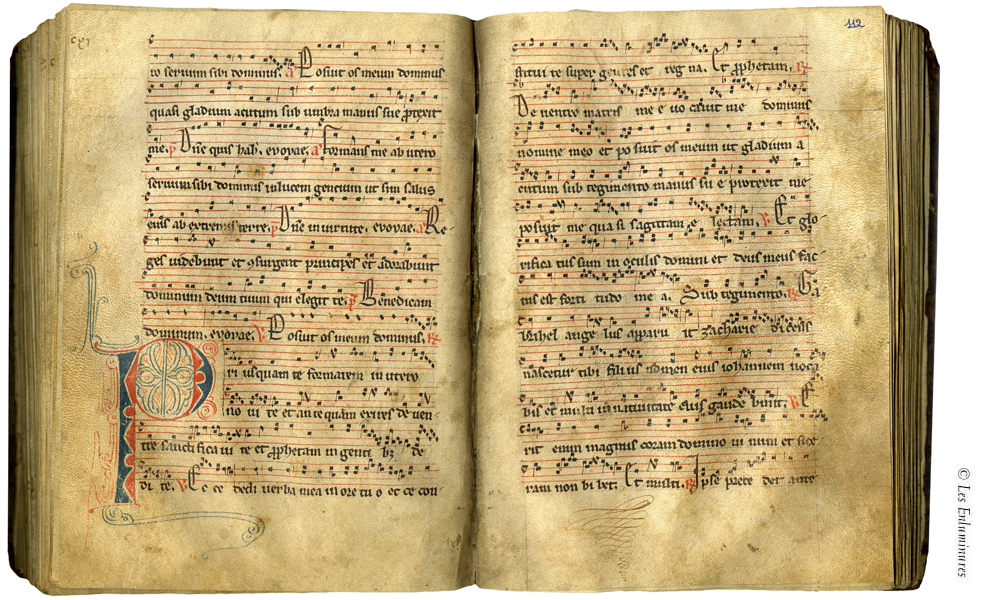 cxj
to servum sibi dominus. a Posuit os meum dominus
quasi gladium acutum sub umbra manus sue protexit
me. p Dñe quis hab. evovae. a Formans me ab utero
servum sibi dominus in lucem gencium ut sim salus
eius ab extremis terre. p Dñe in virtute. evovae. a Re-
ges videbunt et ꝯsurgent principes et adorabunt
dominum deum tuum qui elegit te. p Benedicam
dominum. evovae. V Posuit os meum dominus. R
Pri usquam te formarem in utero
no vi te et an te quam exires de ven
tre sancti fica vi te et prophetam in genti bꝫ de
di te. V Ec ce dedi verba mea in ore tu o et ec con-
112
stitui te super gentes et reg na. Et prophetam. R
De ventre matris me e vo cavit me dominus
nomine meo et po suit os meum ut gladium a
cutum sub tegmento manus su e protexit me
posuit me qua si sagittam e lectam. V Et glo
rifica tus sum in oculis domini et deus meus fac
tus est forti tudo me a. Sub tegmento. R Ga
brihel ange lus apparu it zacharie dicens
nascetur tibi filius nomen eius iohannem voca
bis et multi in nativitate eius gaude bunt. V E
rit enim magnus coram domino vi num et sice
ram non bi bet. Et multi. R Ipse prece det ante
© Les Enluminures